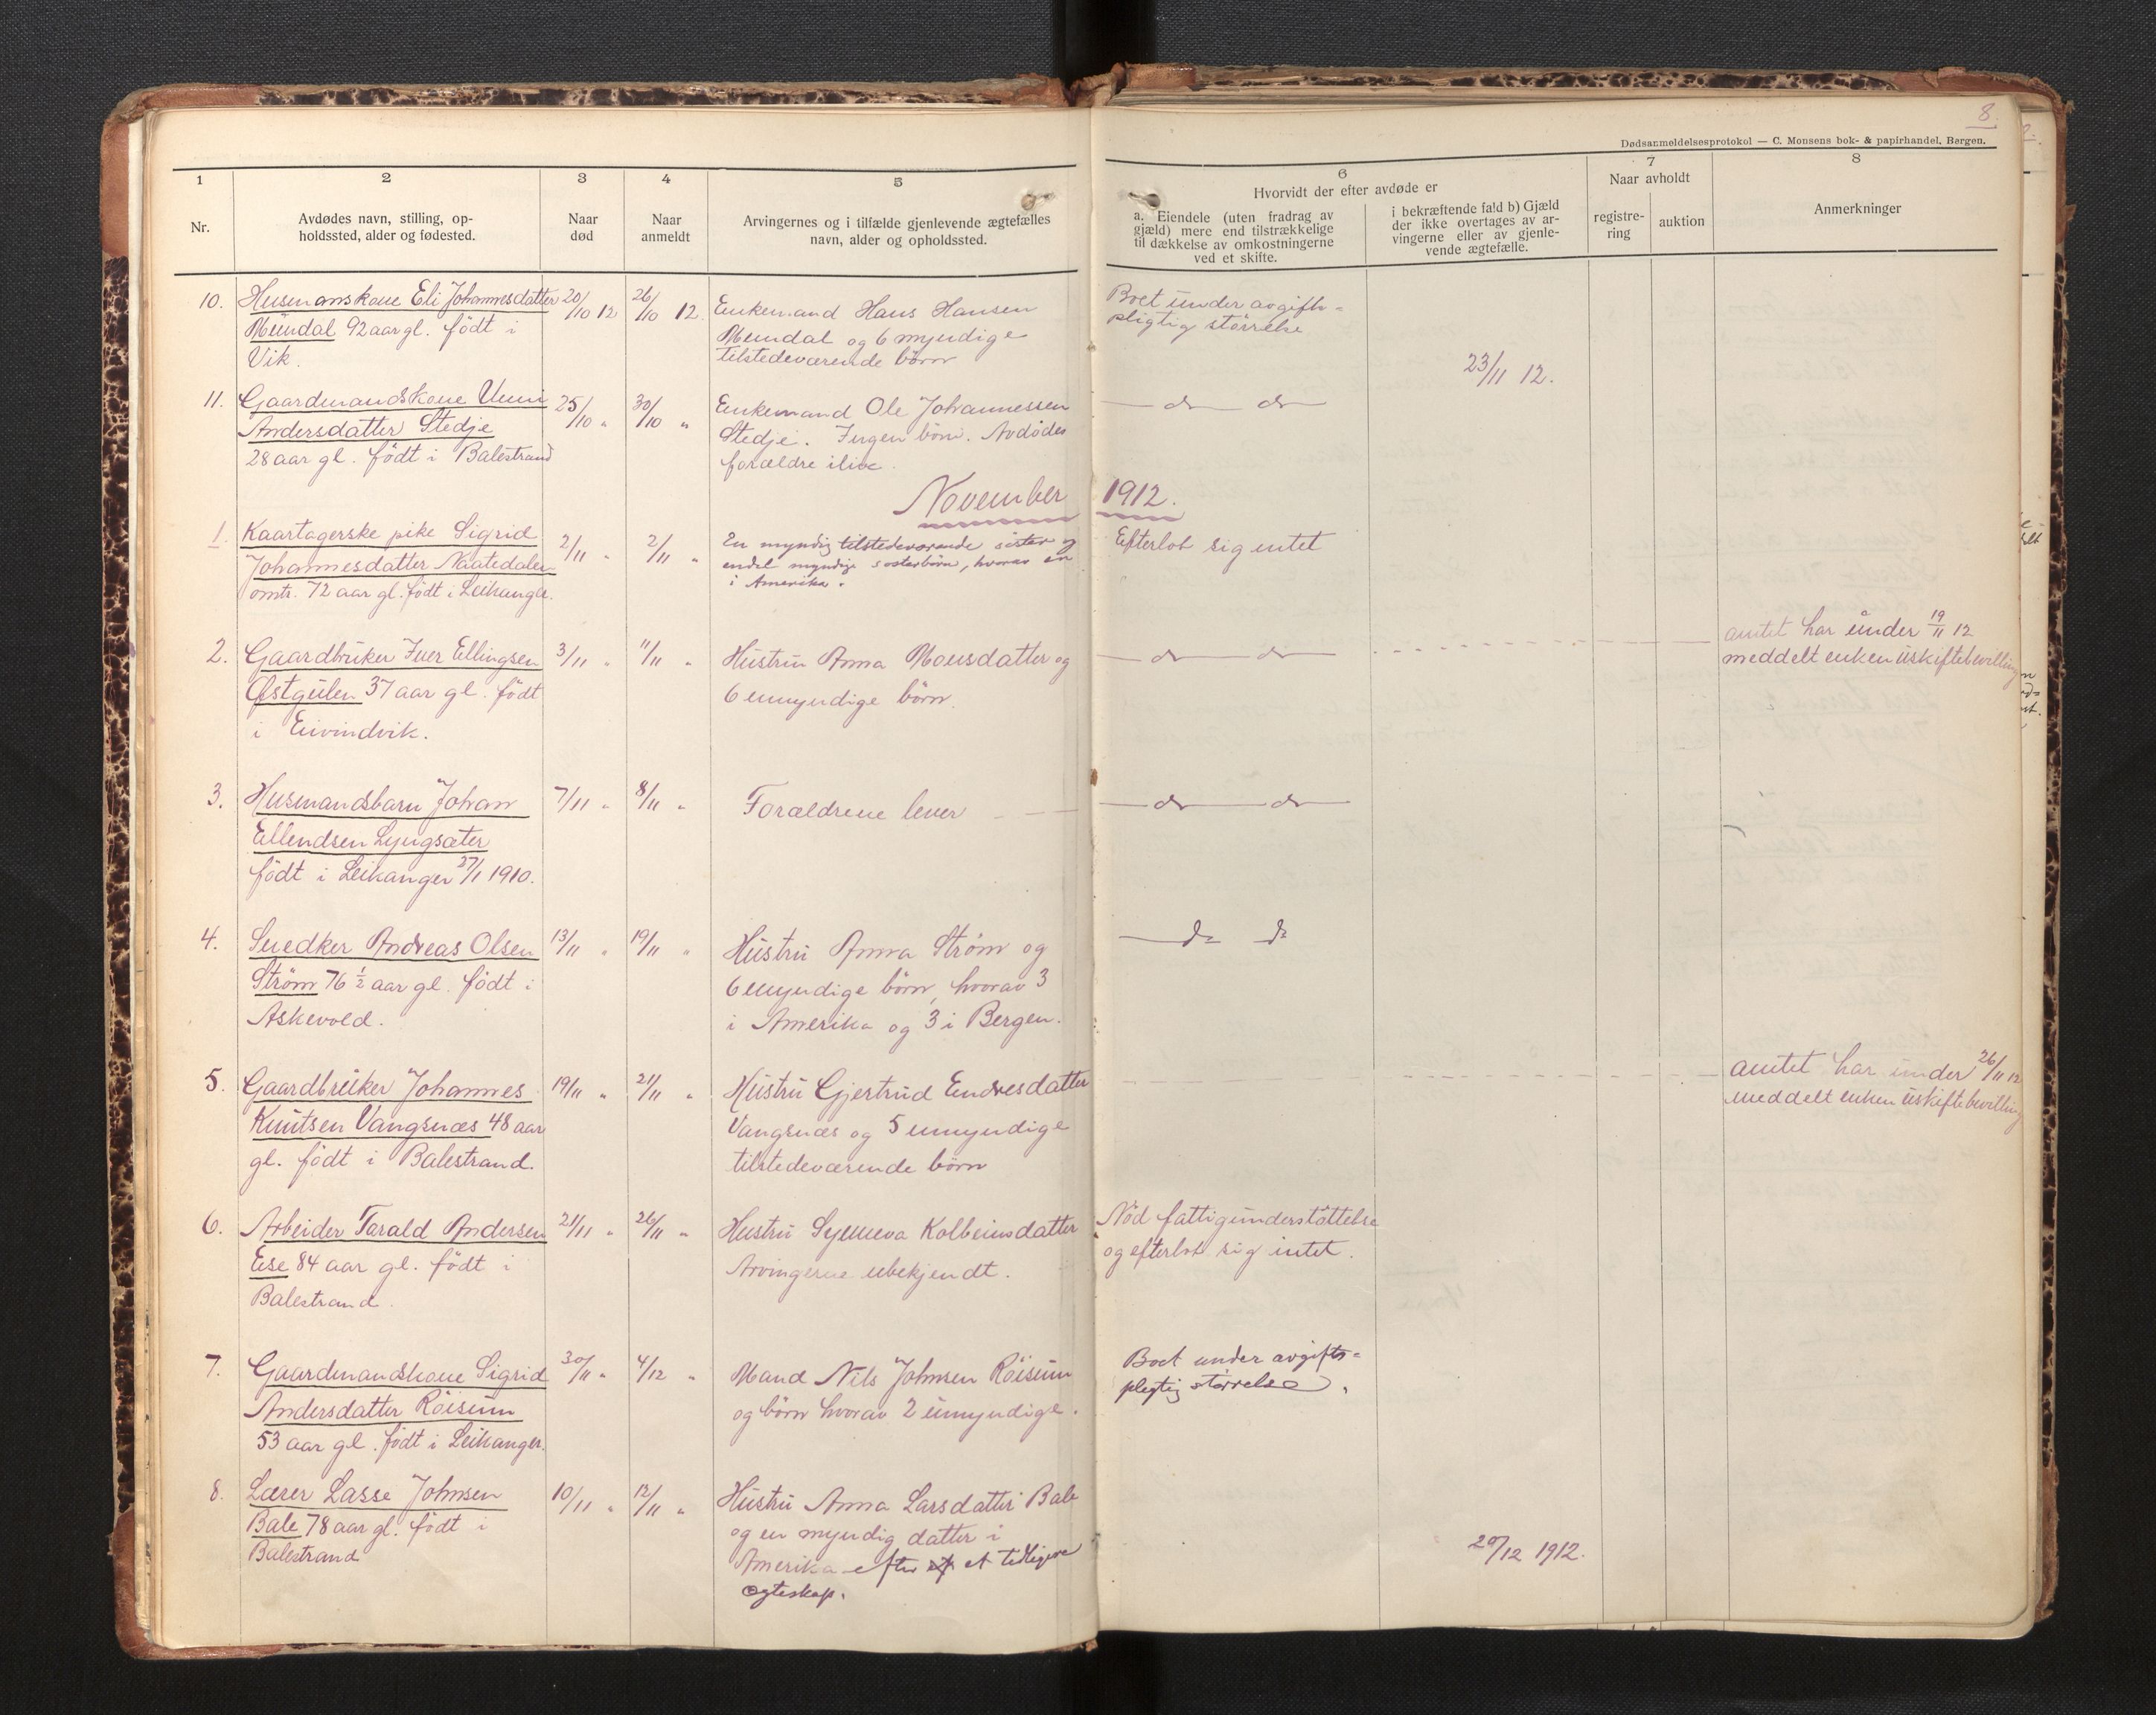 8.
Dødsanmeldelsesprotokol — C. Monsens bok- & papirhandel, Bergen.
1
2
3
4
5
6
7
8
Nr.
Avdødes navn, stilling, op-
holdssted, alder og fødested.
Naar
død
Naar
anmeldt
Arvingernes og i tilfælde gjenlevende ægtefælles
navn, alder og opholdssted.
Hvorvidt der efter avdøde er
a. Eiendele (uten fradrag av
gjæld) mere end tilstrækkelige
til dækkelse av omkostningerne
ved et skifte.
i bekræftende fald b) Gjæld
der ikke overtages av ar-
vingerne eller av gjenle-
vende ægtefælle.
Naar avholdt
registre-
ring
auktion
Anmerkninger
10. Husmanskone Eli Johannesdatter 20/10 12 26/10 12.
Mundal 92 aar gl. født i
Vik.
Enkemand Hans Hansen
Mundal og 6 myndige
tilstedeværende børn
Boet under avgifts-
pligtig størrelse
23/11 12.
11. Gaardmandskone Unni 25/10 " 30/10 "
Andersdatter Stedje
28 aar gl. født i Balestrand
Enkemand Ole Johannessen
Stedje. Ingen børn. Avdødes
forældre ilive.
— do — do —
November 1912.
1. Kaartagerske pike Sigrid 2/11 " 2/11 "
Johannesdatter Naatedalen
omtr. 72 aar gl. født i Leikanger.
En myndig tilstedeværende søster og
endel myndige søsterbørn, hvorav en
i Amerika.
Efterlot sig intet
2. Gaardbruker Iver Ellingsen 3/11 " 11/11 "
Østgulen 37 aar gl. født
i Eivindvik.
Hustru Anna Monsdatter og
6 umyndige børn.
— do — do —
amtet har under 19/11 12
meddelt enken uskiftebevilling
3. Husmandsbarn Johan 7/11 " 8/11 "
Ellendsen Lyngsæter
født i Leikanger 27/1 1910.
Forældrene lever
— do — do —
4. Snedker Andreas Olsen 13/11 " 19/11 "
Strøm 76 1/2 aar gl. født i
Askevold.
Hustru Anna Strøm og
6 myndige børn, hvorav 3
i Amerika og 3 i Bergen.
— do do
5. Gaardbruker Johannes 19/11 " 21/11 "
Knutsen Vangsnæs 48 aar
gl. født i Balestrand.
Hustru Gjertrud Endresdatter
Vangsnæs og 5 umyndige
tilstedeværende børn
amtet har under 26/11 12
meddelt enken uskiftebevilling
6. Arbeider Tarald Andersen 21/11 " 26/11 "
Ese 84 aar gl. født i
Balestrand.
Hustru Synneva Kolbeinsdatter
Arvingerne ubekjendt.
Nød fattigunderstøttelse
og efterlot sig intet.
7. Gaardmandskone Sigrid 30/11 " 4/12 "
Andersdatter Røisum
53 aar gl. født i Leikanger.
Mand Nils Johnsen Røisum
og børn hvorav 2 umyndige.
Boet under avgifts-
pligtig størrelse.
8. Lærer Lasse Johnsen 10/11 " 12/11 "
Bale 78 aar gl. født i
Balestrand
Hustru Anna Larsdatter Bale
og en myndig datter i
Amerika efter et tidligere
egteskap.
20/12 1912.